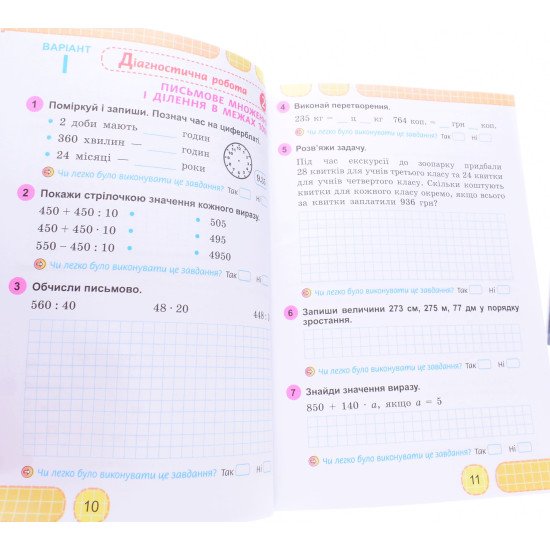 ВАРІАНТ
I
Діагностична робота
ПИСЬМОВЕ
І ДІЛЕННЯ В МЕЖАХ
1 Поміркуй і запиши. Познач час на циферблаті.
• 2 доби мають ____ годин
• 360 хвилин — ____ годин
• 24 місяці — ____ роки
Чи легко було виконувати це завдання? Так Ні
2 Покажи стрілочкою значення кожного виразу.
450 + 450 : 10 • • 505
450 + 450 : 10 • • 495
550 − 450 : 10 • • 4950
Чи легко було виконувати це завдання? Так Ні
3 Обчисли письмово.
560 : 40 48 · 20 448 :
Чи легко було виконувати це завдання? Так Ні
10
4 Виконай перетворення.
235 кг = __ ц __ кг 764 коп. = __ грн __ коп.
Чи легко було виконувати це завдання? Так Ні
5 Розв'яжи задачу.
Під час екскурсії до зоопарку придбали
28 квитків для учнів третього класу та 24 квитки
для учнів четвертого класу. Скільки коштують
квитки для кожного класу окремо, якщо всього
за квитки заплатили 936 грн?
Чи легко було виконувати це завдання? Так Ні
6 Запиши величини 273 см, 275 м, 77 дм у порядку
зростання.
Чи легко було виконувати це завдання? Так Ні
7 Знайди значення виразу.
850 + 140 · a, якщо a = 5
Чи легко було виконувати це завдання? Так Ні
11